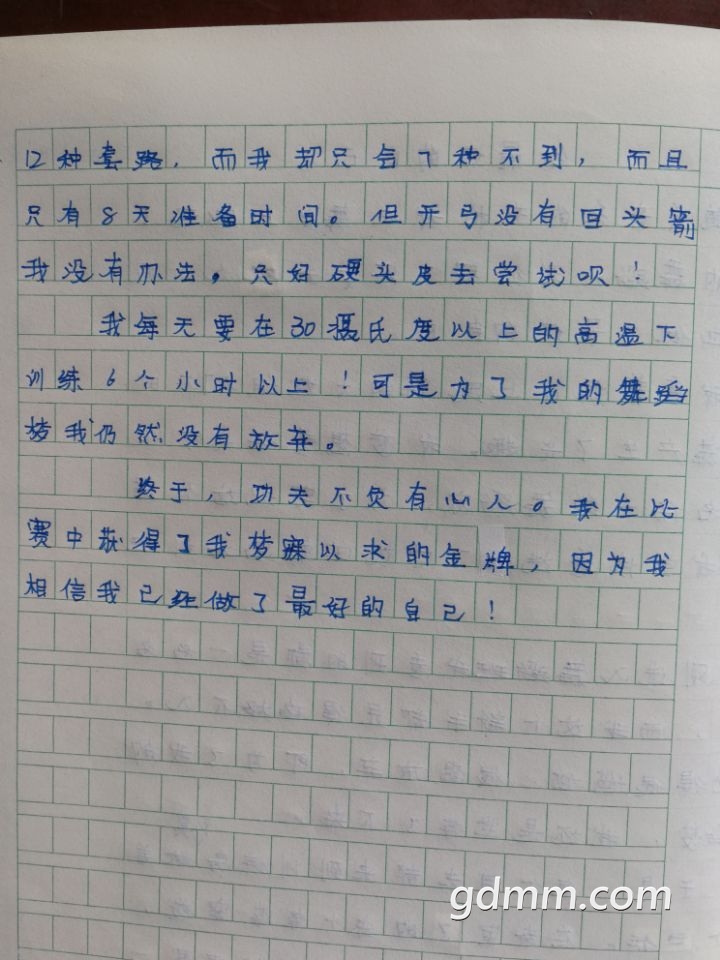 12种套路，而我却只会7种不到，而且
只有8天准备时间。但开弓没有回头箭
我没有办法，只好硬头皮去尝试呗！
我每天要在30摄氏度以上的高温下
训练6个小时以上！可是为了我的舞蹈
梦我仍然没有放弃。
终于，功夫不负有心人。我在比
赛中获得了我梦寐以求的金牌，因为我
相信我已经做了最好的自己！
gdmm.com